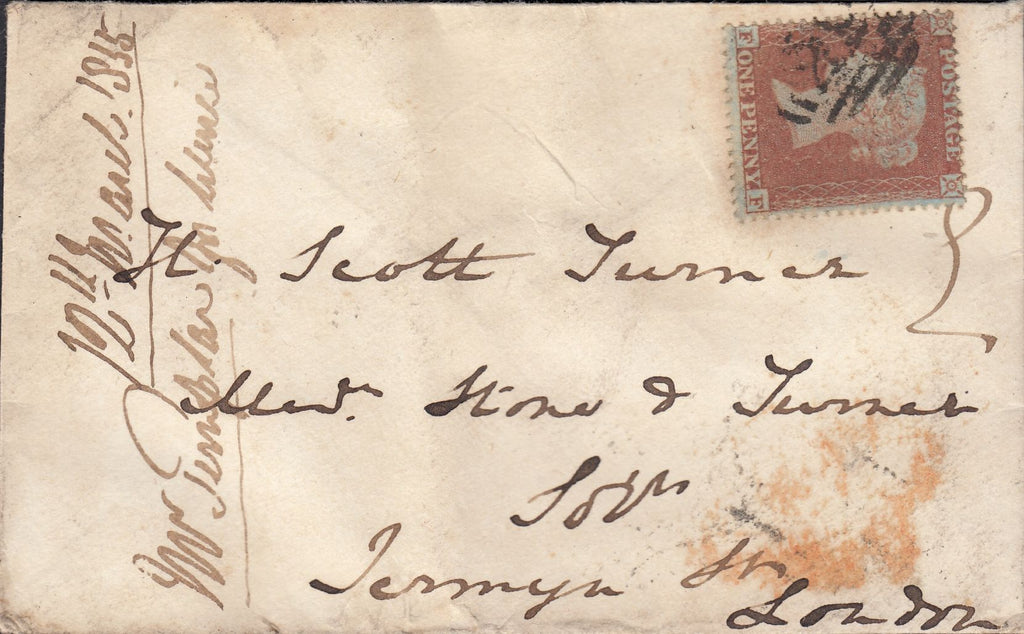 POSTAGE
ONE PENNY
E F
H. Scott Turner
Messrs. Stone & Turner
Solrs
Jermyn St.
London
12th March. 1855
Mr Templar